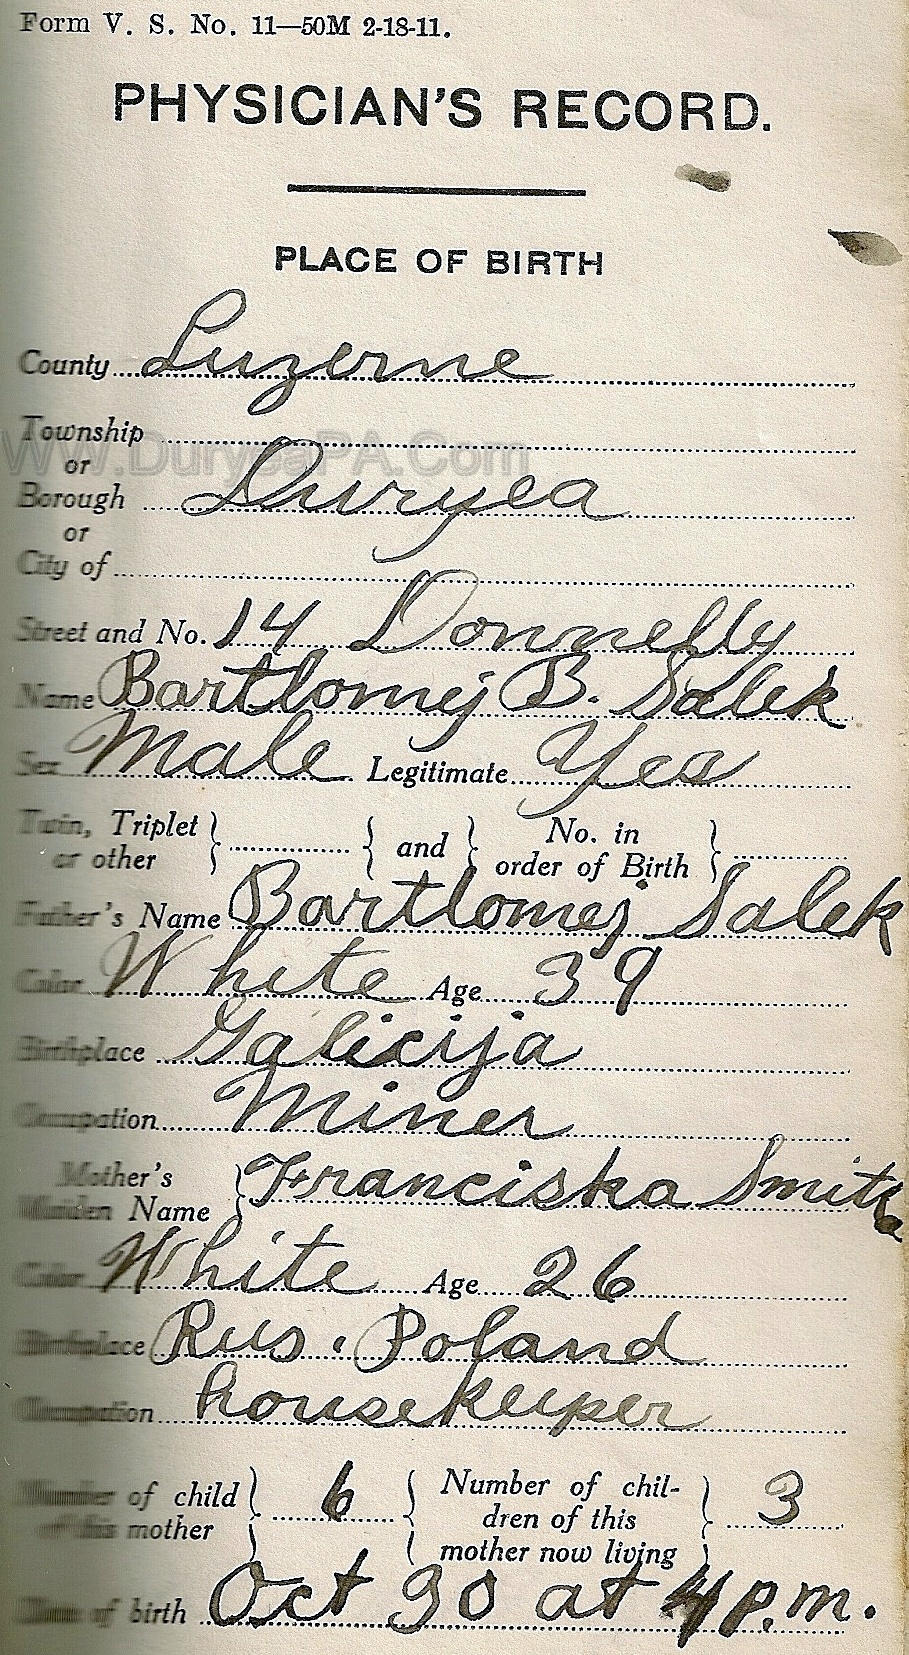 Form V. S. No. 11—50M 2-18-11.
PHYSICIAN'S RECORD.
PLACE OF BIRTH
County Luzerne
Township
www.DuryeaPA.Com
or
Borough Duryea
or
City of
Street and No. 14 Donnelly
Name Bartlomej B. Salek
Sex Male Legitimate Yes
Twin, Triplet or other } { and } No. in order of Birth }
Father's Name Bartlomej Salek
Color White Age 39
Birthplace Galicija
Occupation Miner
Mother's Maiden Name } Franciska Smitka
Color White Age 26
Birthplace Rus. Poland
Occupation housekeuper
Number of child of this mother } 6 { Number of children of this mother now living } 3
Date of birth Oct 30 at 4 p.m.